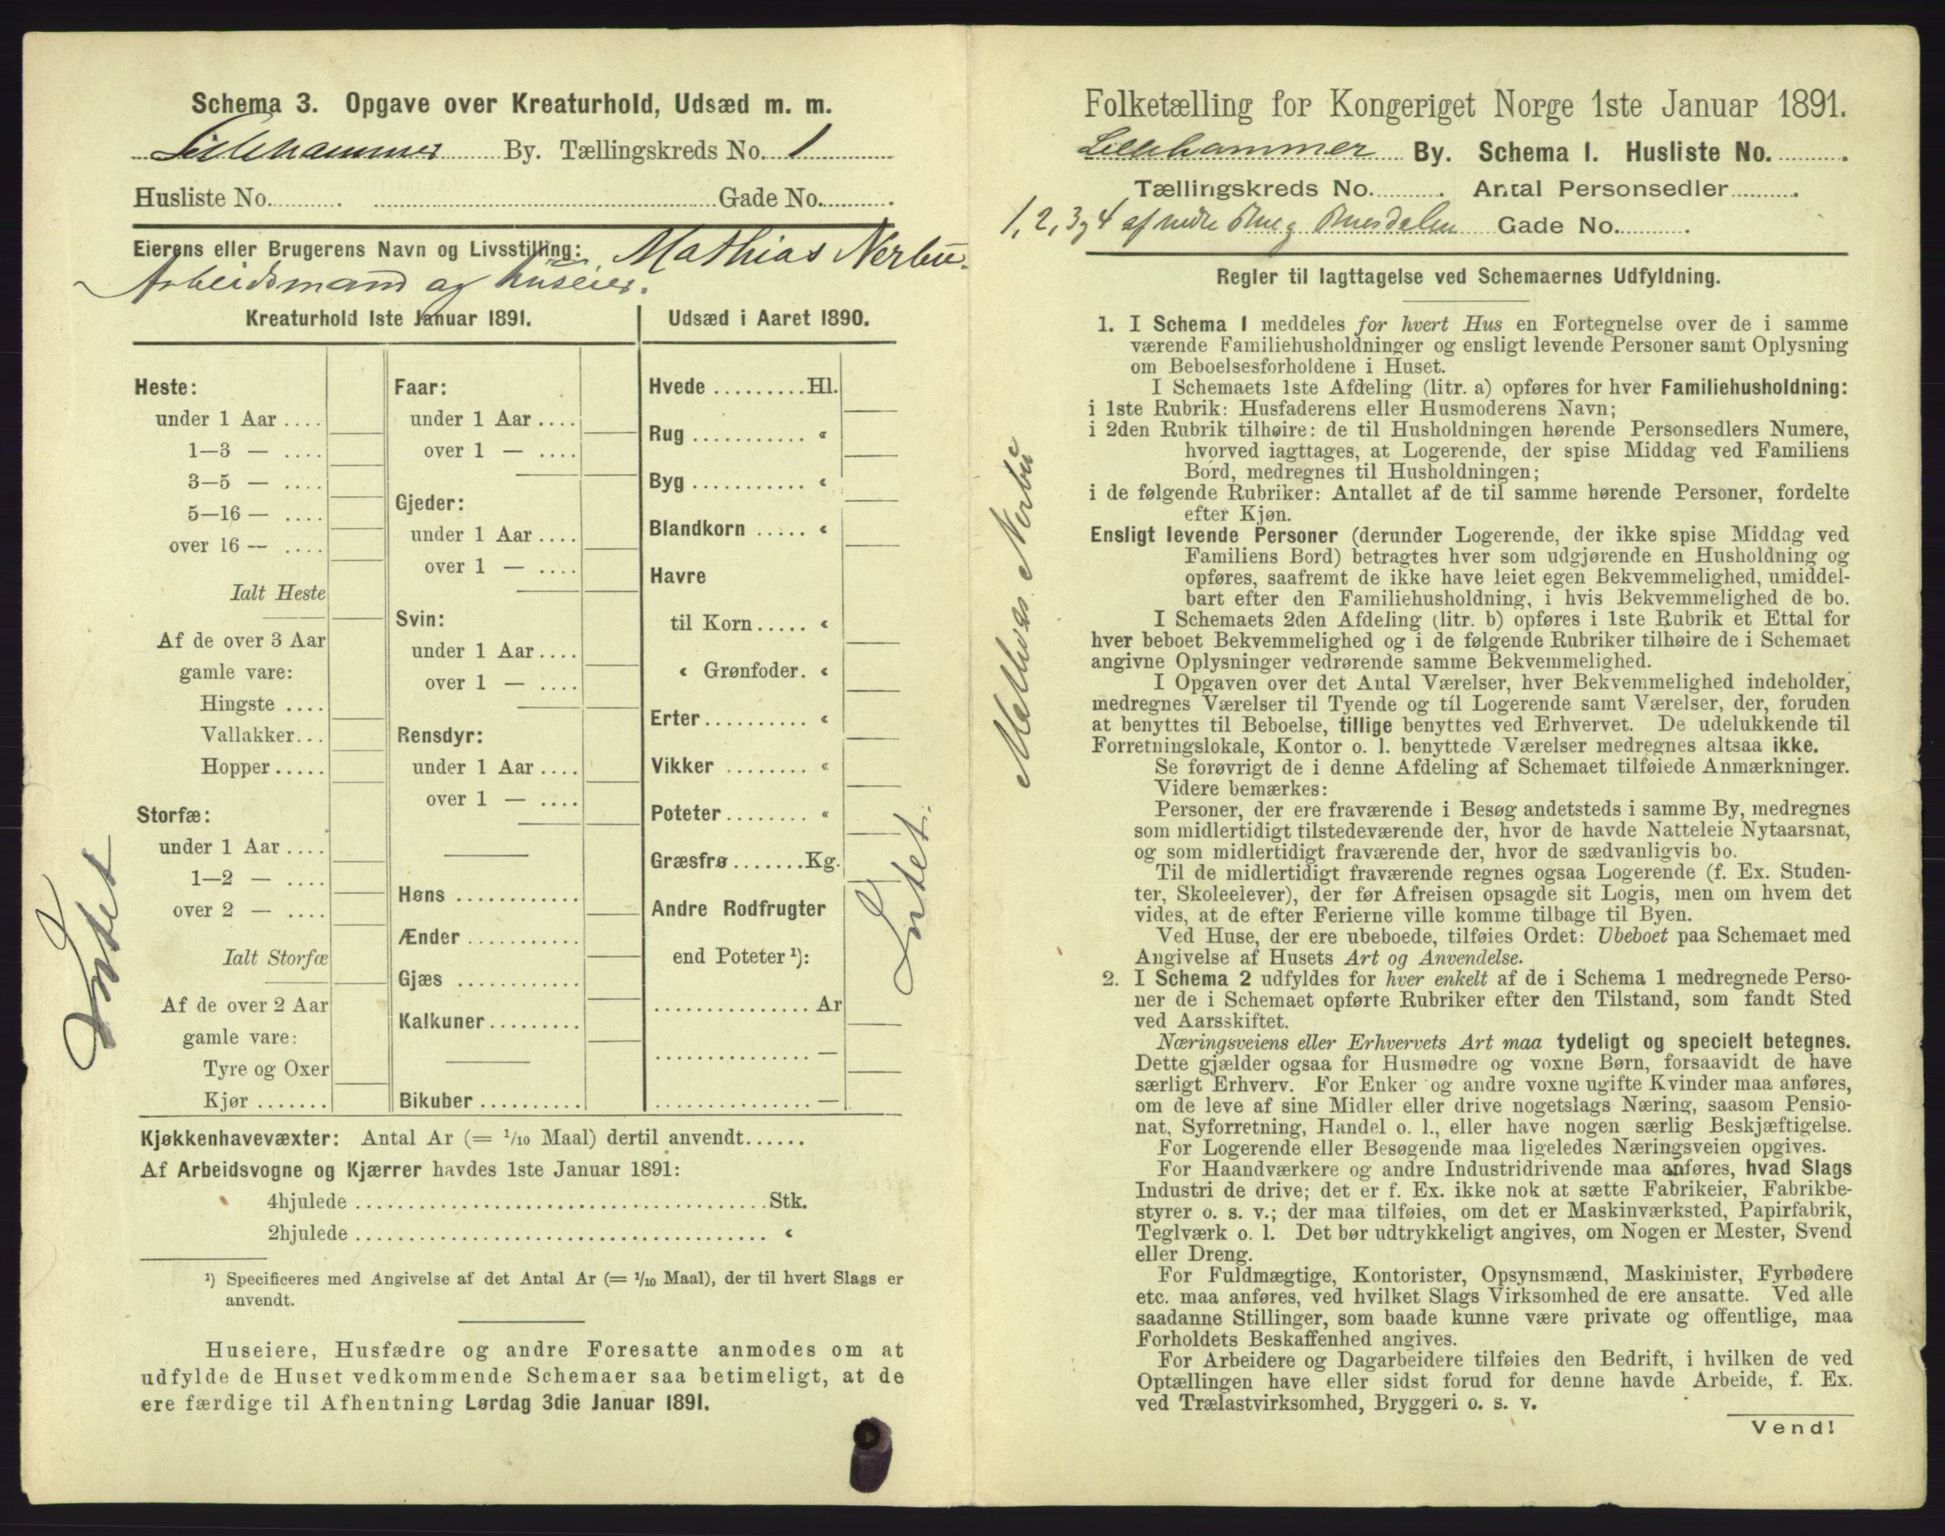 Schema 3. Opgave over Kreaturhold, Udsæd m. m.
Lillehammer By. Tællingskreds No. 1
Husliste No. Gade No.
Eierens eller Brugerens Navn og Livsstilling: Mathias Nerbu.
Arbeidsmand og huseier.
Kreaturhold 1ste Januar 1891.
Heste:
under 1 Aar ....
1—3 — ....
3—5 — ....
5—16 — ....
over 16 — ....
Ialt Heste
Af de over 3 Aar
gamle vare:
Hingste ....
Vallakker...
Hopper.....
Storfæ:
under 1 Aar ....
1—2 — ....
over 2 — ....
Ialt Storfæ
Af de over 2 Aar
gamle vare:
Tyre og Oxer
Kjør .......
Intet
Faar:
under 1 Aar ....
over 1 — ....
Gjeder:
under 1 Aar ....
over 1 — ....
Svin:
under 1 Aar ....
over 1 — ....
Rensdyr:
under 1 Aar ....
over 1 — ....
Høns ............
Ænder ...........
Gjæs ............
Kalkuner.........
Bikuber ..........
Udsæd i Aaret 1890.
Hvede .........Hl.
Rug ........... «
Byg ........... «
Blandkorn ..... «
Havre
til Korn ..... «
« Grønfoder. «
Erter.......... «
Vikker ........ «
Poteter........ «
Græsfrø .......Kg.
Andre Rodfrugter
end Poteter ¹):
............... Ar
............... —
............... —
Intet.
Kjøkkenhavevæxter: Antal Ar (= 1/10 Maal) dertil anvendt......
Af Arbeidsvogne og Kjærrer havdes 1ste Januar 1891:
4hjulede ....................................... Stk.
2hjulede ....................................... «
¹) Specificeres med Angivelse af det Antal Ar (= 1/10 Maal), der til hvert Slags er
anvendt.
Huseiere, Husfædre og andre Foresatte anmodes om at
udfylde de Huset vedkommende Schemaer saa betimeligt, at de
ere færdige til Afhentning Lørdag 3die Januar 1891.
Folketælling for Kongeriget Norge 1ste Januar 1891.
Lillehammer By. Schema 1. Husliste No.
Tællingskreds No. Antal Personsedler
1, 2, 3 og 4 af nedre Gade No.
Mathias Nerbu
Regler til Iagttagelse ved Schemaernes Udfyldning.
1. I Schema 1 meddeles for hvert Hus en Fortegnelse over de i samme
værende Familiehusholdninger og ensligt levende Personer samt Oplysning
om Beboelsesforholdene i Huset.
I Schemaets 1ste Afdeling (litr. a) opføres for hver Familiehusholdning:
i 1ste Rubrik: Husfaderens eller Husmoderens Navn;
i 2den Rubrik tilhøire: de til Husholdningen hørende Personsedlers Numere,
hvorved iagttages, at Logerende, der spise Middag ved Familiens
Bord, medregnes til Husholdningen;
i de følgende Rubriker: Antallet af de til samme hørende Personer, fordelte
efter Kjøn.
Ensligt levende Personer (derunder Logerende, der ikke spise Middag ved
Familiens Bord) betragtes hver som udgjørende en Husholdning og
opføres, saafremt de ikke have leiet egen Bekvemmelighed, umiddel-
bart efter den Familiehusholdning, i hvis Bekvemmelighed de bo.
I Schemaets 2den Afdeling (litr. b) opføres i 1ste Rubrik et Ettal for
hver beboet Bekvemmelighed og i de følgende Rubriker tilhøire de i Schemaet
angivne Oplysninger vedrørende samme Bekvemmelighed.
I Opgaven over det Antal Værelser, hver Bekvemmelighed indeholder,
medregnes Værelser til Tyende og til Logerende samt Værelser, der, foruden
at benyttes til Beboelse, tillige benyttes ved Erhvervet. De udelukkende til
Forretningslokale, Kontor o. l. benyttede Værelser medregnes altsaa ikke.
Se forøvrigt de i denne Afdeling af Schemaet tilføiede Anmærkninger.
Videre bemærkes:
Personer, der ere fraværende i Besøg andetsteds i samme By, medregnes
som midlertidigt tilstedeværende der, hvor de havde Natteleie Nytaarsnat,
og som midlertidigt fraværende der, hvor de sædvanligvis bo.
Til de midlertidigt fraværende regnes ogsaa Logerende (f. Ex. Studen-
ter, Skoleelever), der før Afreisen opsagde sit Logis, men om hvem det
vides, at de efter Ferierne ville komme tilbage til Byen.
Ved Huse, der ere ubeboede, tilføies Ordet: Ubeboet paa Schemaet med
Angivelse af Husets Art og Anvendelse.
2. I Schema 2 udfyldes for hver enkelt af de i Schema 1 medregnede Perso-
ner de i Schemaet opførte Rubriker efter den Tilstand, som fandt Sted
ved Aarsskiftet.
Næringsveiens eller Erhvervets Art maa tydeligt og specielt betegnes.
Dette gjælder ogsaa for Husmødre og voxne Børn, forsaavidt de have
særligt Erhverv. For Enker og andre voxne ugifte Kvinder maa anføres,
om de leve af sine Midler eller drive nogetslags Næring, saasom Pensio-
nat, Syforretning, Handel o. l., eller have nogen særlig Beskjæftigelse.
For Logerende eller Besøgende maa ligeledes Næringsveien opgives.
For Haandværkere og andre Industridrivende maa anføres, hvad Slags
Industri de drive; det er f. Ex. ikke nok at sætte Fabrikeier, Fabrikbe-
styrer o. s. v.; der maa tilføies, om det er Maskinværksted, Papirfabrik,
Teglværk o. l. Det bør udtrykkeligt angives, om Nogen er Mester, Svend
eller Dreng.
For Fuldmægtige, Kontorister, Opsynsmænd, Maskinister, Fyrbødere
etc. maa anføres, ved hvilket Slags Virksomhed de ere ansatte. Ved alle
saadanne Stillinger, som baade kunne være private og offentlige, maa
Forholdets Beskaffenhed angives.
For Arbeidere og Dagarbeidere tilføies den Bedrift, i hvilken de ved
Optællingen have eller sidst forud for denne havde Arbeide, f. Ex.
ved Trælastvirksomhed, Bryggeri o. s. v.
Vend!